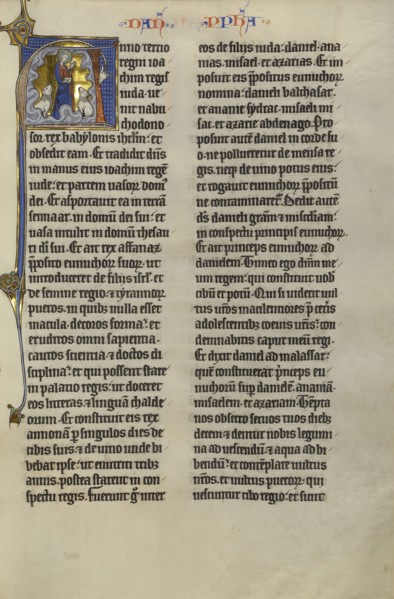 DAN PPHA
nno tercio
regni ioa
chim regis
iuda. ue
nit nabu
chodono
sor. rex babylonis ihrlm. et
obsedit eam. Et tradidit dns
in manus eius ioachim regē
iude. et partem uasorū domꝰ
dei. Et asportauit ea in terrā
sennaar. in domū dei sui. et
uasa intulit in domū thesau
ri di sui. Et ait rex assanaz
pposito eunuchorū suorū. ut
introduceret de filijs isrl. et
de semine regio. et tyrannorū
pueros. in quibꝫ nulla esset
macula. decoros forma. et
eruditos omni sapientia.
cautos scientia. et doctos di
sciplina. et qui possent stare
in palatio regis. ut doceret
eos litteras. et linguā chalde
orum. Et constituit eis rex
annonā p singulos dies de
cibis suis. et de uino unde bi
bebat ipse. ut enutriti tribꝫ
annis. postea starent in con
spectu regis. Fuerunt g̊ inter
eos de filijs iuda. daniel. ana
nias. misael. et azarias. Et im
posuit eis ppositus eunuchorū
nomina. danieli balthasar.
et ananie sydrac. misaeli mi
sac. et azarie abdenago. Pro
posuit autē daniel in corde su
o. ne pollueretur de mensa re
gis. neqꝫ de uino potus eius.
et rogauit eunuchorū ppositū
ne contaminaretr. Dedit autē
ds danieli gratiā et misdiam.
in conspectu principis eunuchorū.
Et ait princeps eunuchorū ad
danielem. Timeo ego dnm me
um regem. qui constituit uob
cibū et potū. Qui si uiderit uul
tus uros macilentiores p ceris
adolescentibꝫ coeuis uris. con
demnabitis caput meū regi.
Et dixit daniel ad malassar.
quē constituerat princeps eu
nuchorū sup danielē. ananiā.
misaelem. et azariam. Tempta
nos obsecro seruos tuos diebꝫ
decem. et dentur nobis legumi
na ad uescendū. et aqua ad bi
bendū. et contemplare uultus
nros. et uultus puerorū. qui
uescuntur cibo regio. et sicut